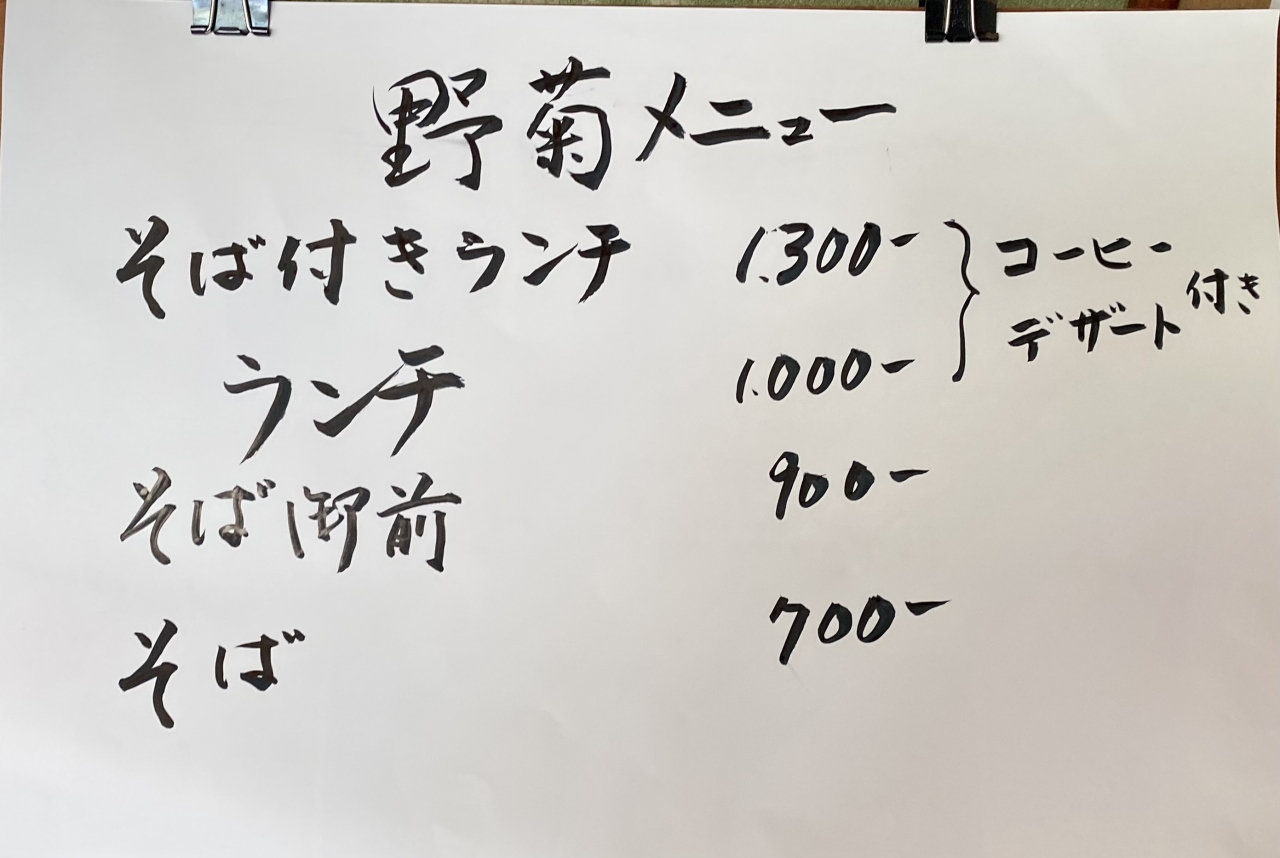 野菊メニュー
そば付きランチ 1.300-
ランチ 1.000-
コーヒー
デザート付き
そば御前 900-
そば 700-